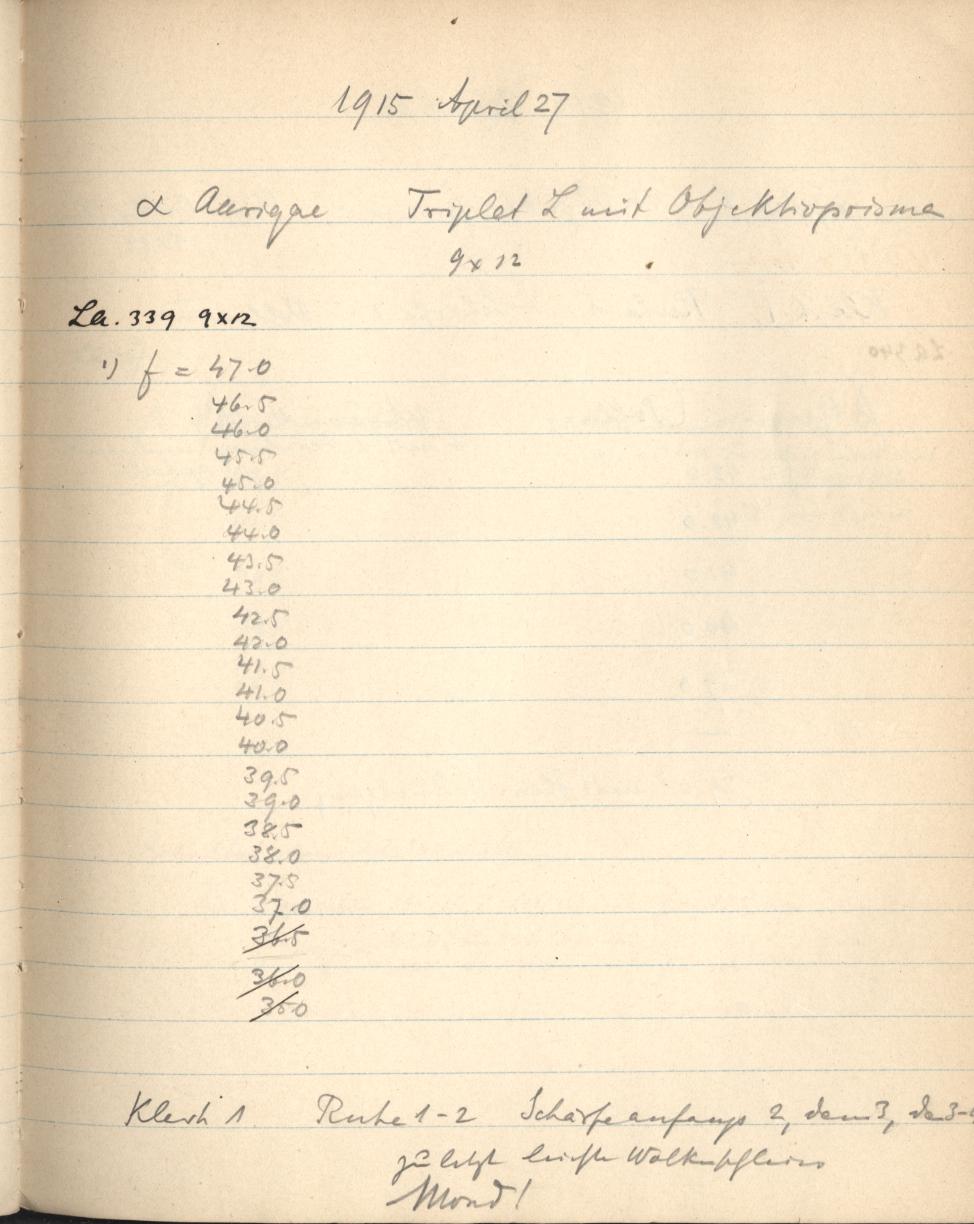 1915 April 27
α Aurigae Triplet L mit Objektivprisma
9x12
La. 339 9x12
1) f = 47.0
46.5
46.0
45.5
45.0
44.5
44.0
43.5
43.0
42.5
42.0
41.5
41.0
40.5
40.0
39.5
39.0
38.5
38.0
37.5
37.0
36.5
36.0
35.0
Klarh 1 Ruhe 1-2 Schärfe anfangs 2, dann 3,
zuletzt leichte Wolkenschleier
Mond!